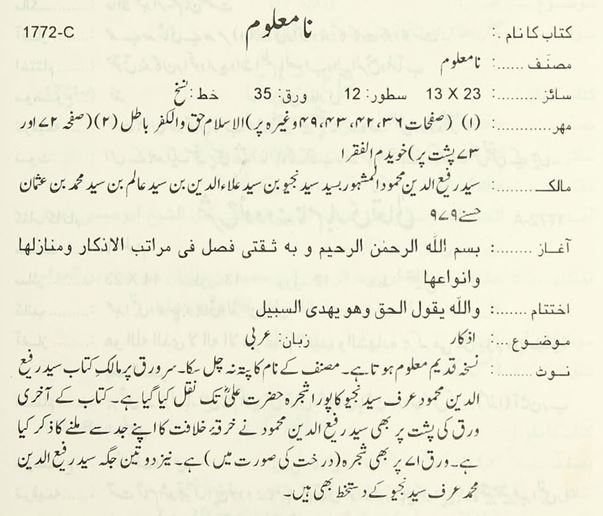 1772-C نامعلوم کتاب کا نام :.
مصنّف ......: نامعلوم
سائز ........: 23 X 13 سطور: 12 ورق: 35 خط: نسخ
مہر ..........: (۱) (صفحات ۳۶، ۴۲، ۴۳، ۴۹ وغیرہ پر) الاسلام حق والکفر باطل (۲) (صفحہ ۷۲ اور
۷۳ پشت پر) خویدم الفقرا
مالک ........: سید رفیع الدین محمود المشہور بسید سید نجیو بن سید علاءالدین بن سید عالم بن سید محمد بن عثمان
حسنے ۹۷۹
آغاز .........: بسم الله الرحمٰن الرحیم و به ثقتی فصل فی مراتب الاذکار ومنازلها
وانواعها
اختتام .......: والله یقول الحق وهو یهدی السبیل
موضوع ...: اذکار زبان: عربی
نوٹ .........: نسخہ قدیم معلوم ہوتا ہے۔ مصنف کے نام کا پتہ نہ چل سکا۔ سرورق پر مالکِ کتاب سید رفیع
الدین محمود عرف سید نجیو کا پورا شجرہ حضرت علیؓ تک نقل کیا گیا ہے۔ کتاب کے آخری
ورق کی پشت پر بھی سید رفیع الدین محمود نے خرقۂ خلافت کا اپنے جد سے ملنے کا ذکر کیا
ہے۔ ورق ۷۱ پر بھی شجرہ (درخت کی صورت میں) ہے۔ نیز دو تین جگہ سید رفیع الدین
محمد عرف سید نجیو کے دستخط بھی ہیں۔